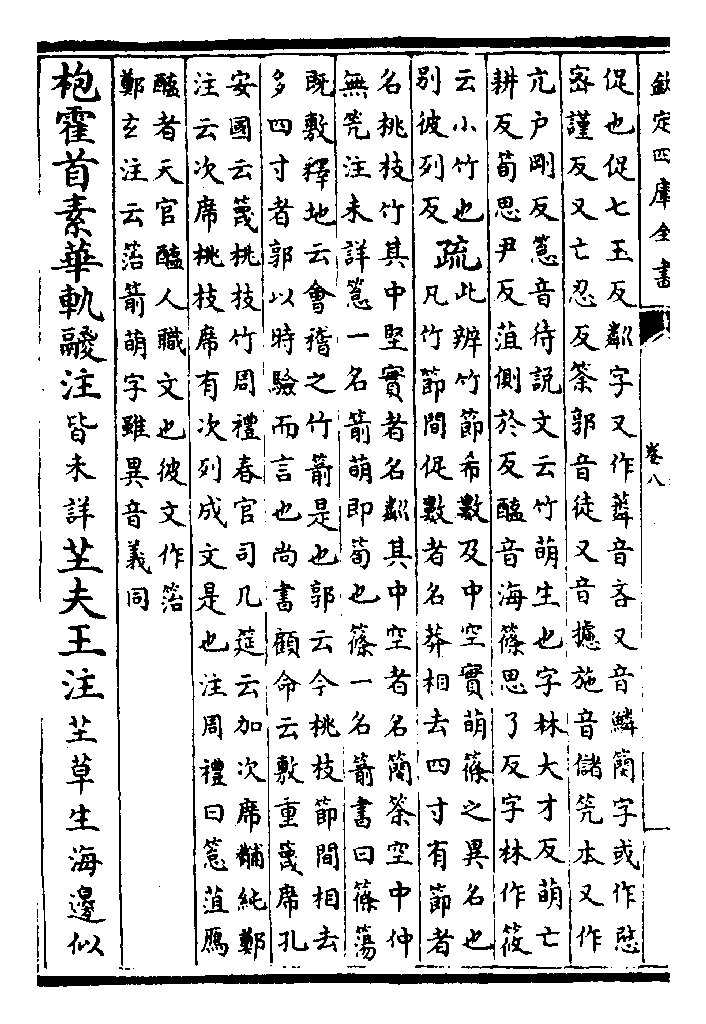 欽定四庫全書
卷八
促也促七玉反粼字又作䉮音吝又音鱗簡字或作愍
密謹反又亡忍反䇡郭音徒又音攄施音儲笐本又作
亢戸剛反䈚音待説文云竹萌生也字林大才反萌亡
耕反筍思尹反菹側於反醢音海篠思了反字林作筱
云小竹也
別彼列反
疏
此辨竹節希數及中空實萌篠之異名也
凡竹節間促數者名莽相去四寸有節者
名桃枝竹其中堅實者名粼其中空者名簡䇡空中仲
無笐注未詳䈚一名箭萌即筍也篠一名箭書曰篠簜
既敷釋地云會稽之竹箭是也郭云今桃枝節間相去
多四寸者郭以時驗而言也尚書顧命云敷重篾席孔
安國云篾桃枝竹周禮春官司几筵云加次席黼純鄭
注云次席桃枝席有次列成文是也注周禮曰䈚菹鴈
醢者天官醢人職文也彼文作箈
鄭玄注云箈箭萌字雖異音義同
枹霍首素華軌鬷注皆未詳芏夫王注芏草生海邊似